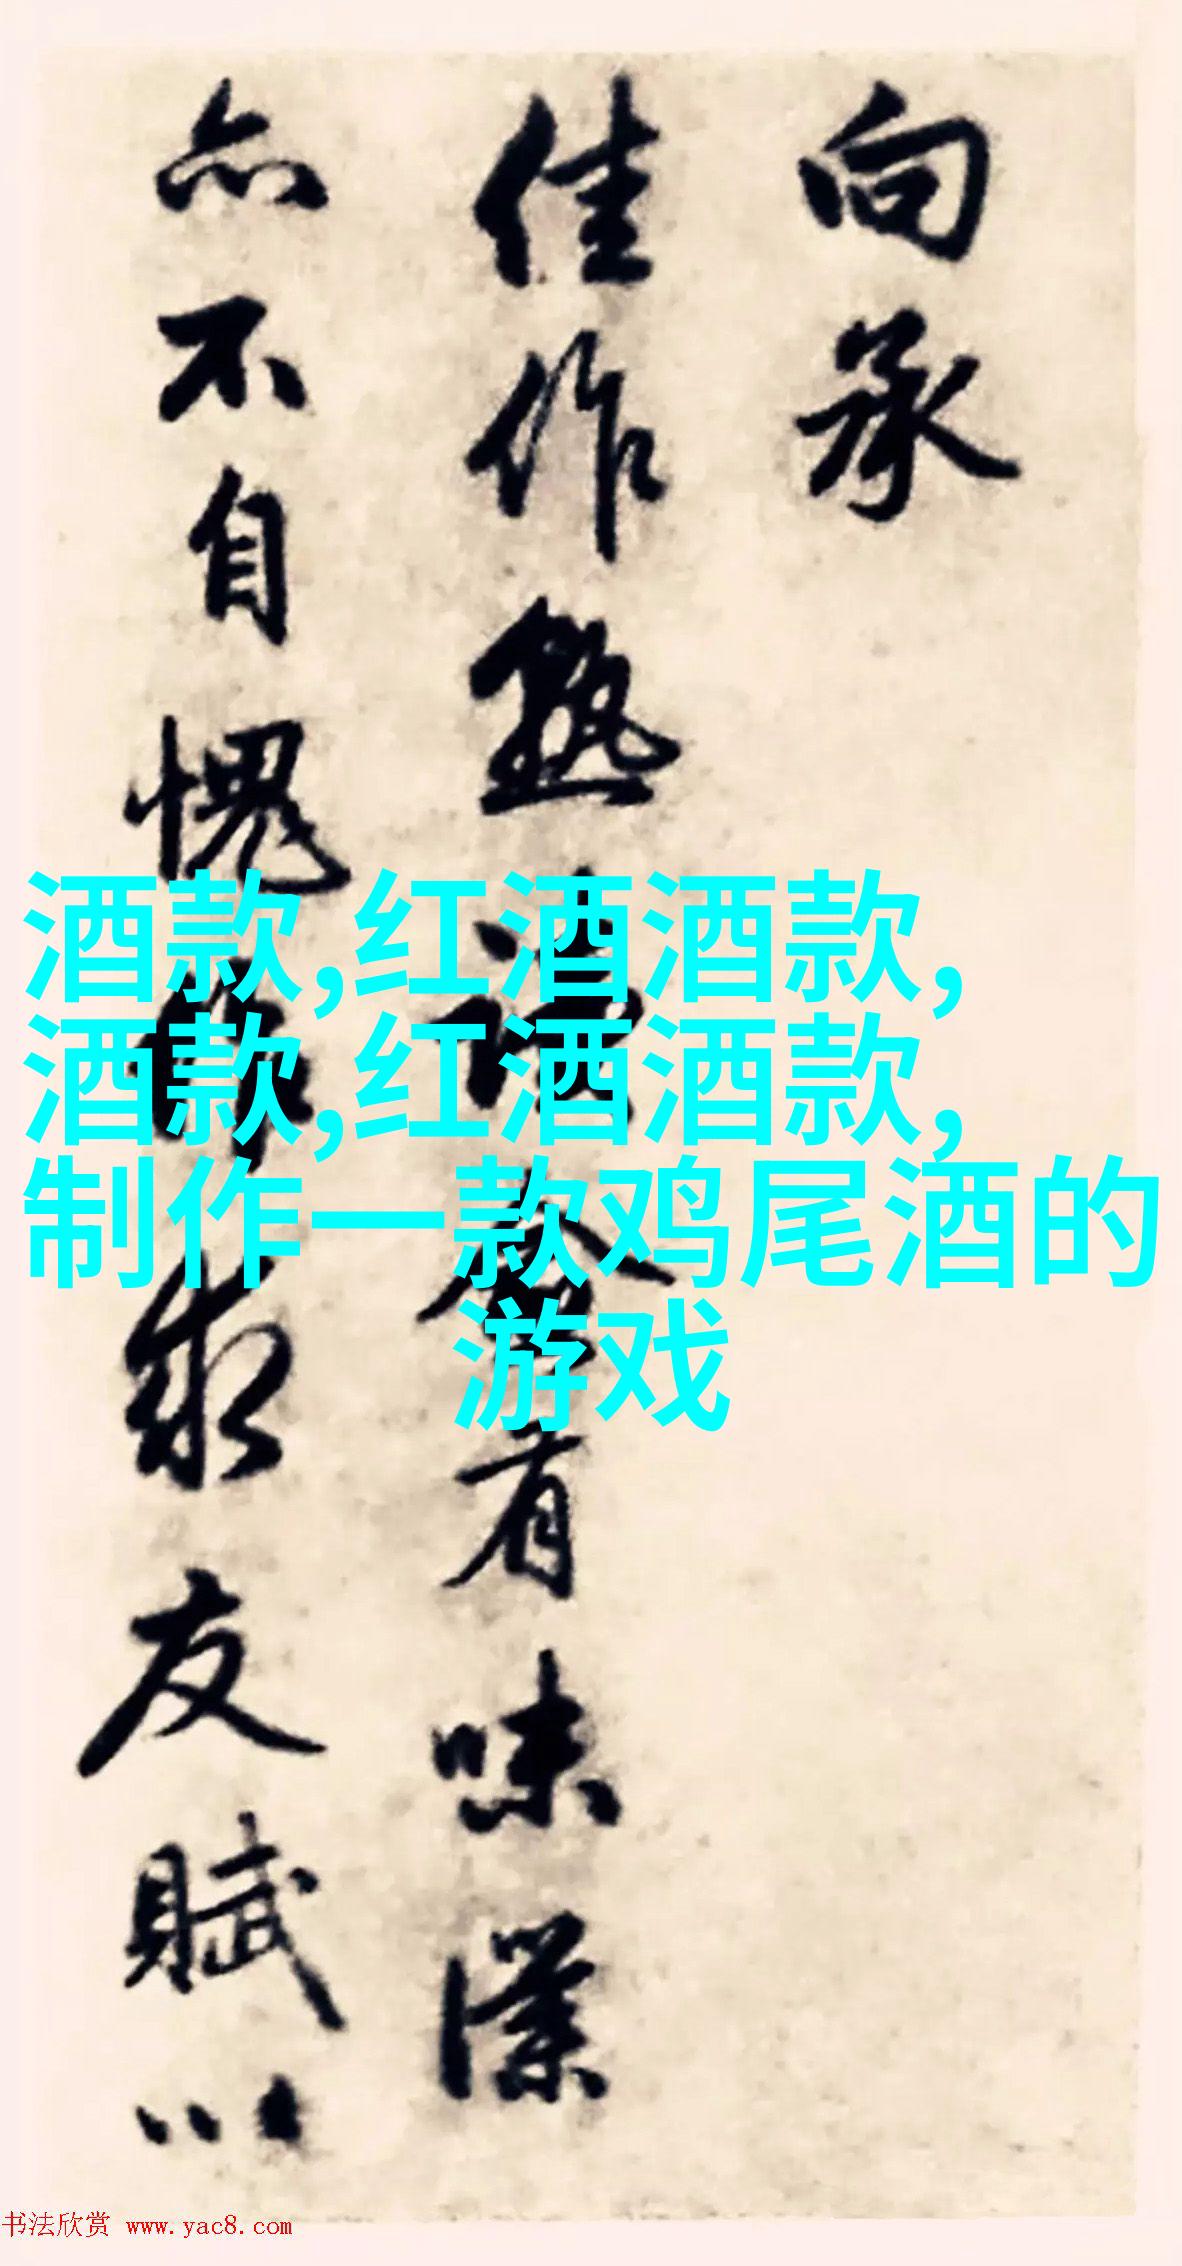 向承
佳作熟读念有味深
亦不自愧作求友赋以
酒款,红酒酒款,
酒款,红酒酒款,
制作一款鸡尾酒的
游戏
书法欣赏 www.yac8.com